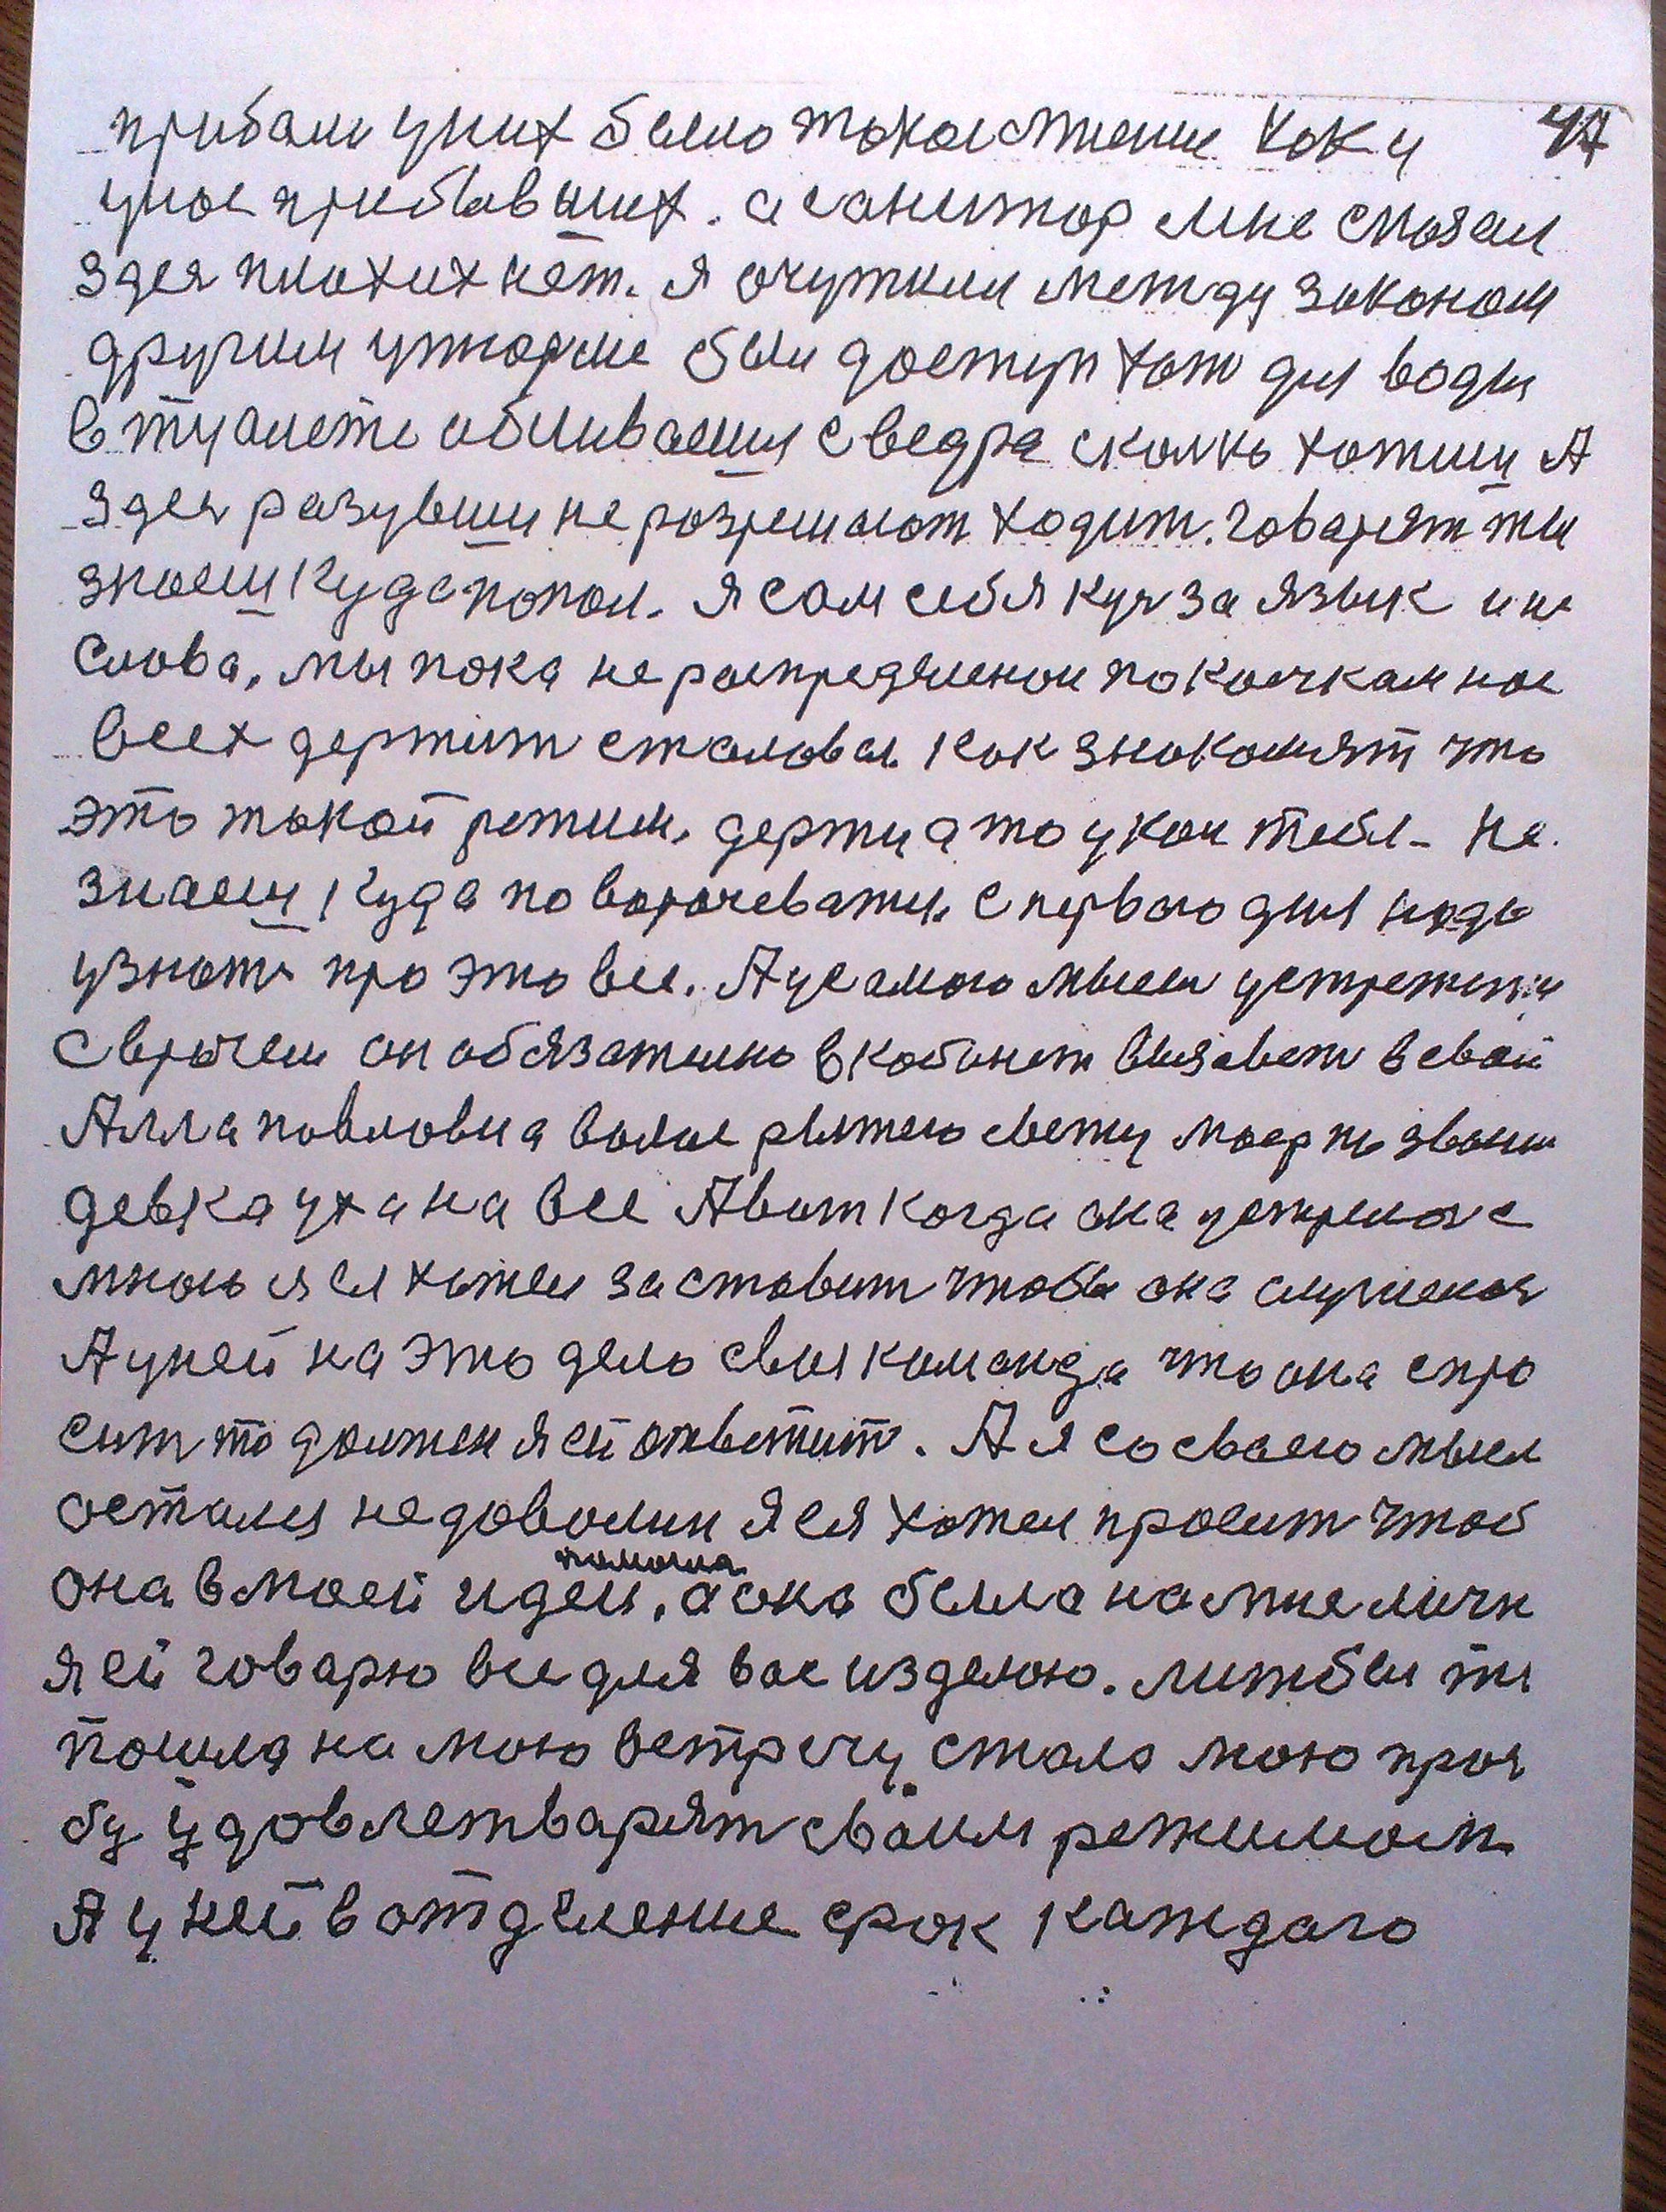 у них было такое мнение как у 47
у нас прибывших. а санитар мне сказал
здеся плохих нет. Я очутился между законом
другим был доступ хот для воды
в туалете обливаешся с ведра сколко хотиш А
здеся разувши не разрешают ходит. говарят ты
знаеш куда попал. Я сам себя за язык
слова. мы пока не распределеной по коечкам нас
всех держит сталовая. как знакомят что
это такой режим. держи а то укол тебя - не
знаеш куда поворачеватся. с первого дня надо
узнать про это все. А у самого мысля
с врачем он обязателно в кабинет вызавет в свой
Алла павловна волос рыжего свету
девка ухана все А вот когда она
мною я ся хотел заставит чтобы она
А у ней на это дело своя команда что она спро
сит то должен я ей ответит. А я со своего мысл
остался недоволин Я ся хотел просит чтоб
помогла
она в моей идеи. а она была на мне
я ей говарю все для вас изделою. ты
пошла на мою встречу стала мою прос
бу удовлетварят своим режимом
А у ней в отделение срок каждаго